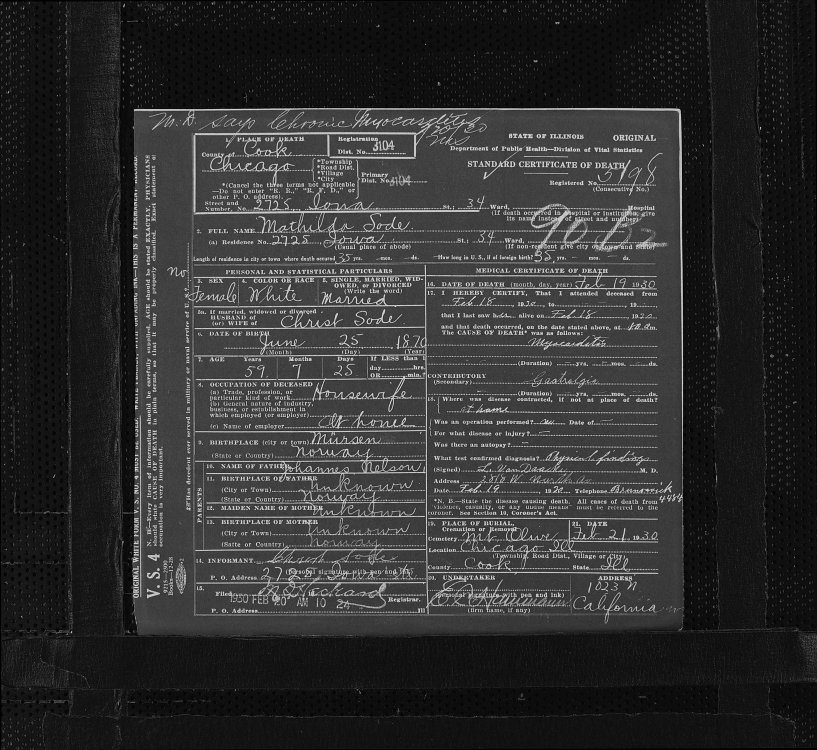 M.D. says Chronic Myocarditis
STATE OF ILLINOIS ORIGINAL
Department of Public Health—Division of Vital Statistics
STANDARD CERTIFICATE OF DEATH
Registered No. 5198
(Consecutive No.)
1. PLACE OF DEATH
Registration
Dist. No. 3104
County of Cook
Chicago
*Township
*Road Dist.
*Village
*City
Primary
Dist. No. 3104
*(Cancel the three terms not applicable
—Do not enter "R. R.," "R. F. D.," or
other P. O. address).
Street and
Number, No. 2725 Iowa St.; 34 Ward, Hospital
(If death occurred in hospital or institution, give
its name instead of street and number)
2. FULL NAME Mathilda Sode
90 B2
(a) Residence No. 2725 Iowa St.; 34 Ward,
(Usual place of abode) (If non-resident give city or town and State)
Length of residence in city or town where death occurred 35 yrs. mos. ds. How long in U. S., if of foreign birth? 35 yrs. mos. ds.
PERSONAL AND STATISTICAL PARTICULARS
3. SEX 4. COLOR OR RACE 5. SINGLE, MARRIED, WIDOWED, or DIVORCED
(Write the word)
Female White Married
5a. If married, widowed or divorced
HUSBAND of
(or) WIFE of Christ Sode
6. DATE OF BIRTH June 25 1870
(Month) (Day) (Year)
7. AGE Years Months Days If LESS than 1
day, hrs.
59 7 25 OR min.?
8. OCCUPATION OF DECEASED
(a) Trade, profession, or
particular kind of work Housewife
(b) General nature of industry,
business, or establishment in
which employed (or employer)
(c) Name of employer At home
9. BIRTHPLACE (city or town)
(State or Country) Norway
PARENTS
10. NAME OF FATHER Johannes Nelson
11. BIRTHPLACE OF FATHER
(City or Town) Unknown
(State or Country) Norway
12. MAIDEN NAME OF MOTHER Unknown
13. BIRTHPLACE OF MOTHER
(City or Town) Unknown
(State or Country) Norway
14. INFORMANT Christ Sode
(Personal signature with pen and ink)
P. O. Address 2725 Iowa St
15.
Filed Registrar.
1930 FEB 20 AM 10 24
P. O. Address Ill
MEDICAL CERTIFICATE OF DEATH
16. DATE OF DEATH (month, day, year) Feb 19 1930
17. I HEREBY CERTIFY, That I attended deceased from
Feb 18 1930, to 19
that I last saw her alive on Feb 18 1930
and that death occurred, on the date stated above, at m.
The CAUSE OF DEATH* was as follows:
Myocarditis
(Duration) yrs. mos. ds.
CONTRIBUTORY
(Secondary)
(Duration) yrs. mos. ds.
18. Where was disease contracted, if not at place of death?
at home
Was an operation performed? no Date of
For what disease or injury?
Was there an autopsy?
What test confirmed diagnosis? Physical findings
(Signed) M. D.
Address
Date Feb 19 1930 Telephone Brunswick
*N. B.—State the disease causing death. All cases of death from
"violence, casualty, or any undue means" must be referred to the
coroner. See Section 10, Coroner's Act.
19. PLACE OF BURIAL,
Cremation or Removal
21. DATE
Cemetery Mt Olive Feb 21, 1930
Location Chicago Ill
(Township, Road Dist., Village or City)
County Cook State Ill
20. UNDERTAKER ADDRESS
1023 N
California
(Personal signature with pen and ink)
(firm name, if any)
V. S. 4